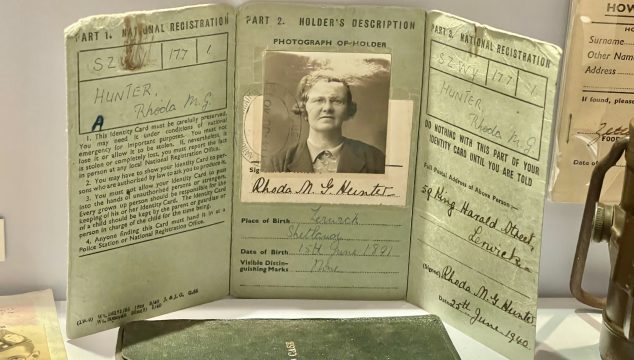 PART 1. NATIONAL REGISTRATION
SZWY 177 1
HUNTER,
Rhoda M.G.
A
1. This Identity Card must be carefully preserved.
You may need it under conditions of national
emergency for important purposes. You must not
lose it or allow it to be stolen. If, nevertheless, it
is stolen or completely lost, you must report the fact
in person at any local National Registration Office.
2. You may have to show your Identity Card to per-
sons who are authorised by law to ask you to produce it.
3. You must not allow your Identity Card to pass
into the hands of unauthorised persons or strangers.
Every grown up person should be responsible for the
keeping of his or her Identity Card. The Identity Card
of a child should be kept by the parent or guardian or
person in charge of the child for the time being.
4. Anyone finding this Card must hand it in at a
Police Station or National Registration Office.
PART 2. HOLDER'S DESCRIPTION
PHOTOGRAPH OF HOLDER
Rhoda M. G. Hunter
Place of Birth Lerwick
Shetland
Date of Birth 15th June 1891
Visible Distin-
guishing Marks None
PART 3. NATIONAL REGISTRATION
SZWY 177 1
HUNTER,
Rhoda M.G.
DO NOTHING WITH THIS PART OF
IDENTITY CARD UNTIL YOU ARE TOLD
Full Postal Address of Above Person:—
King Harald Street
Lerwick
(Signed) Rhoda M. G. Hunter
Date 25th June 1940
HOW
Surname
Other Name
Address
If found, please
Date of
CASE